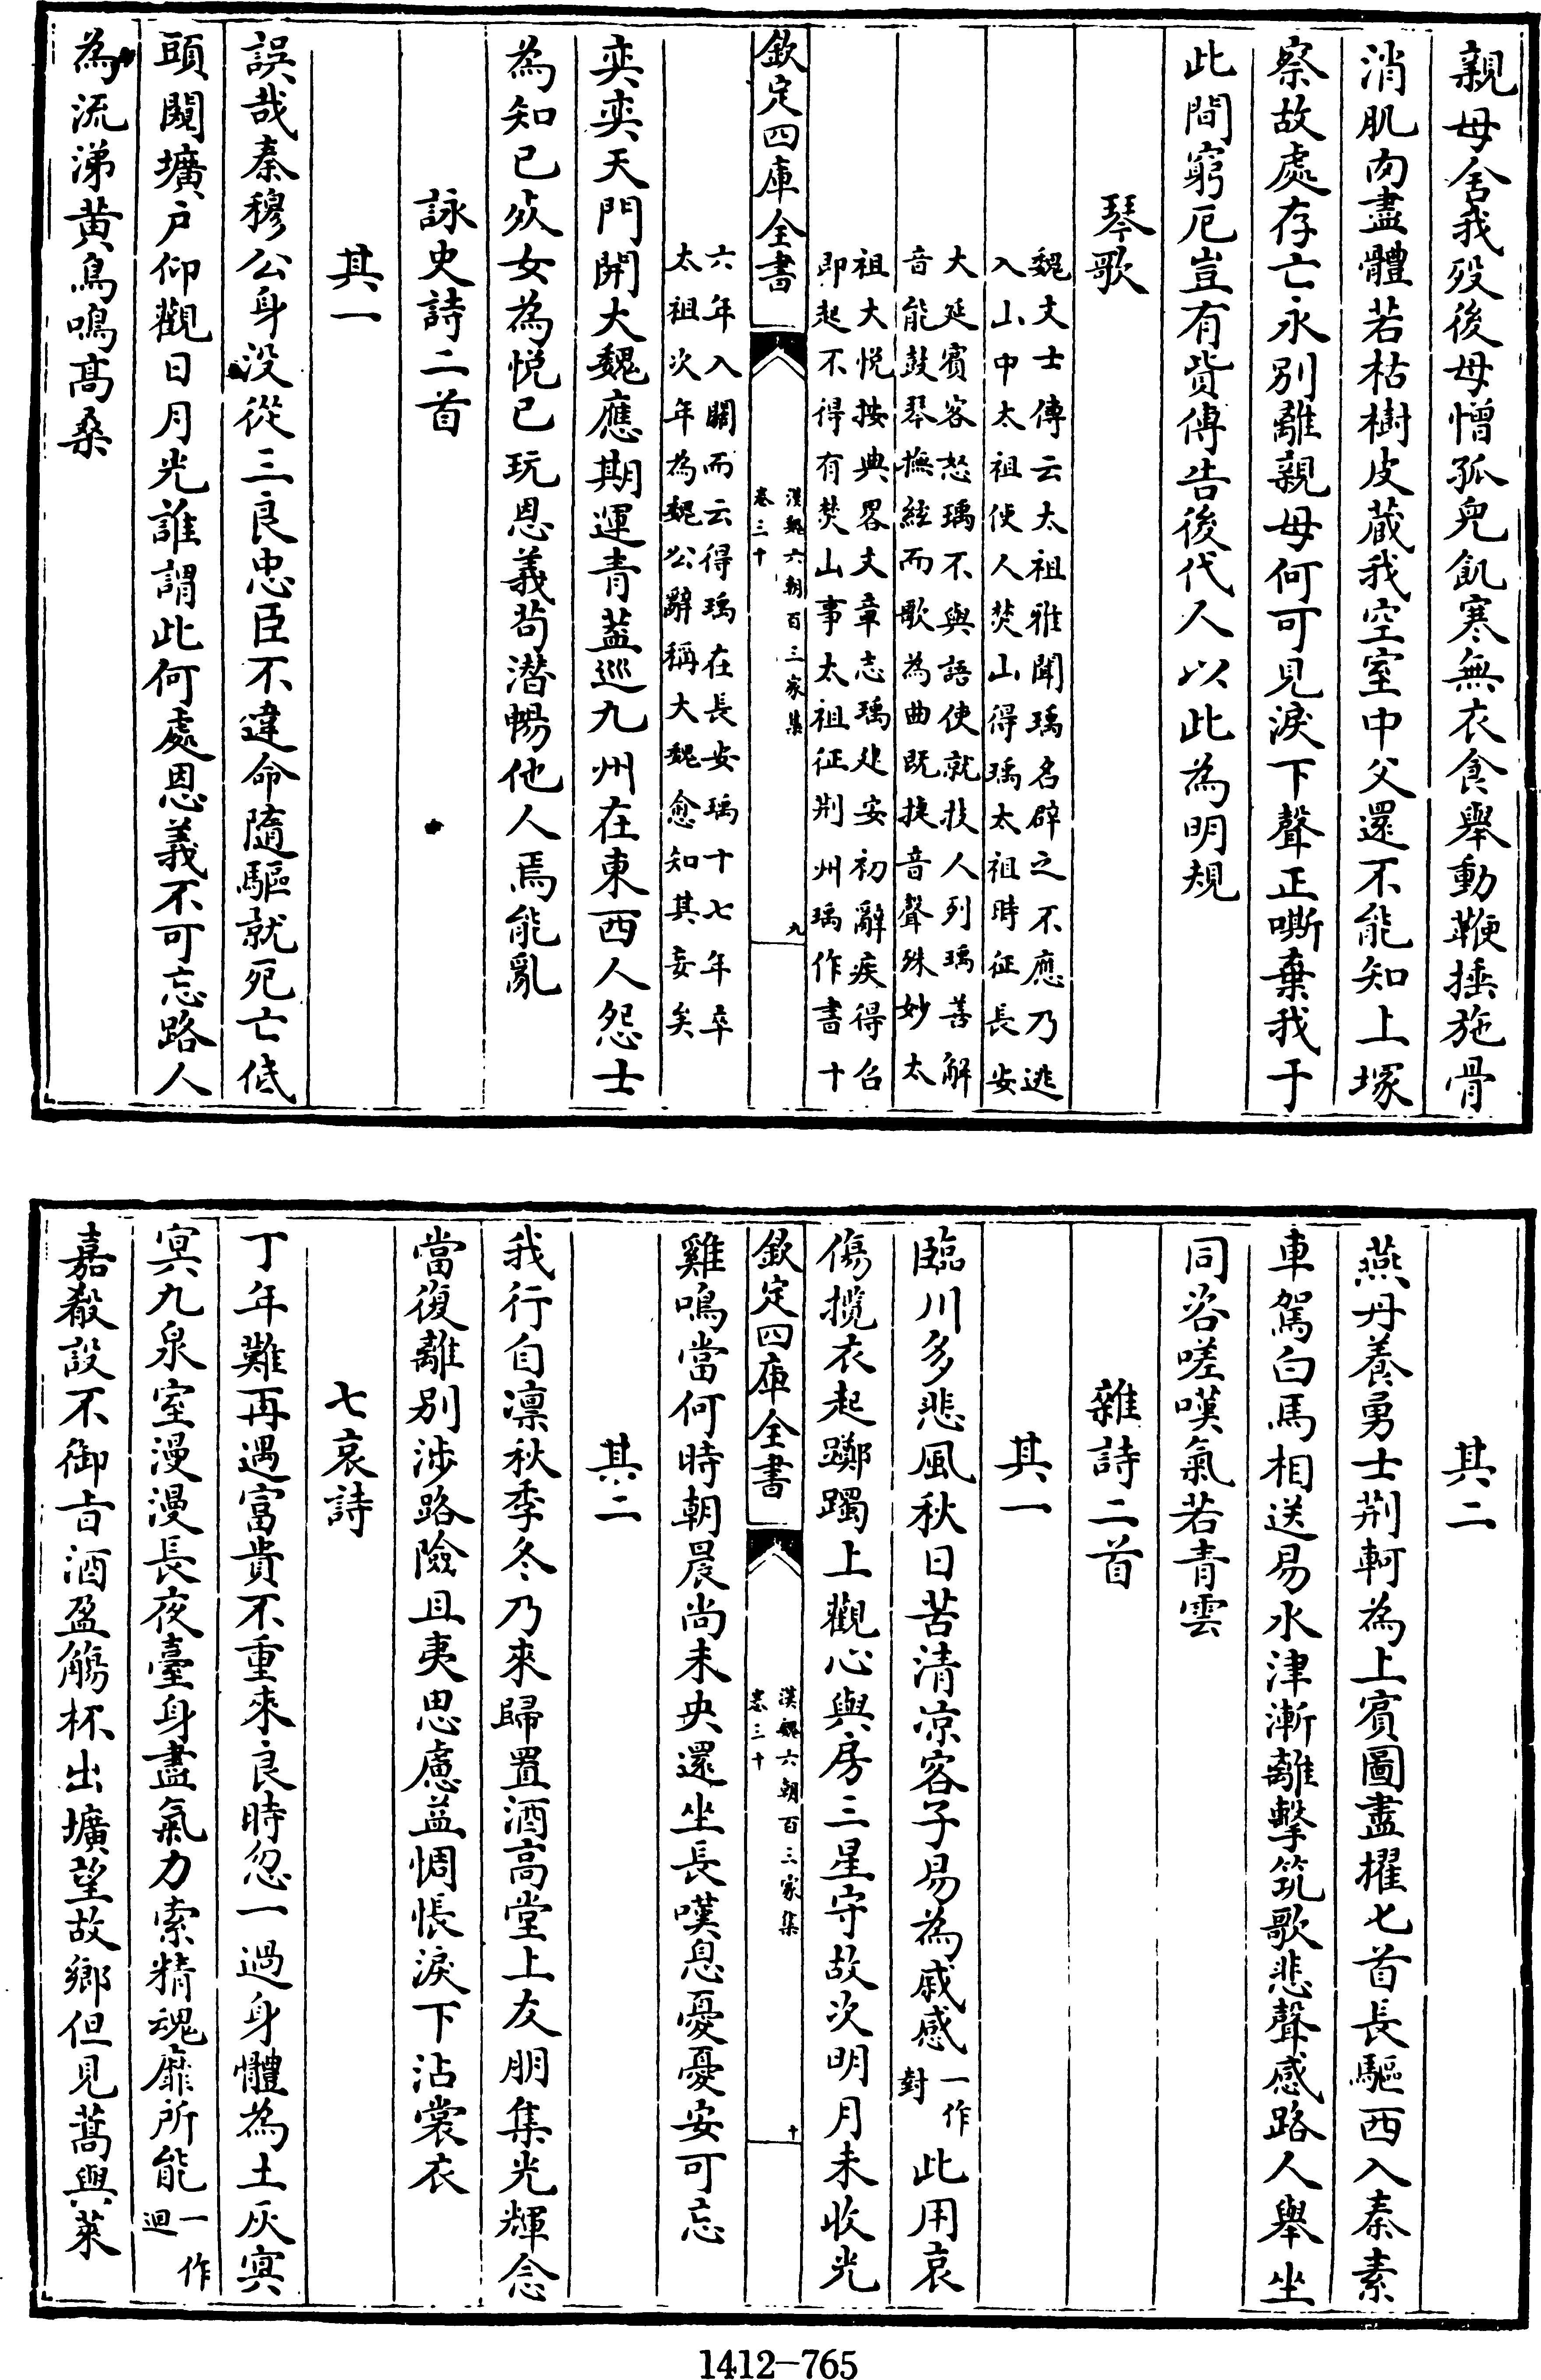 親母舍我殁後母憎孤兒飢寒無衣食舉動鞭捶施骨
消肌肉盡體若枯樹皮蔵我空室中父還不能知上塚
察故處存亡永别離親母何可見淚下聲正嘶棄我于
此間窮厄豈有貲傅告後代人以此為明規
琴歌
魏文士傳云太祖雅聞瑀名辟之不應乃逃
入山中太祖使人焚山得瑀太祖時征長安
大延賓客怒瑀不與語使就技人列瑀善解
音能鼓琴撫絃而歌為曲既捷音聲殊妙太
祖大悦按典畧文章志瑀建安初辭疾得召
即起不得有焚山事太祖征荆州瑀作書十
欽定四庫全書
漢魏六朝百三家集
卷三十
九
六年入闗而云得瑀在長安瑀十七年卒
太祖次年為魏公辭稱大魏愈知其妄矣
奕奕天門開大魏應期運青葢巡九州在東西人怨士
為知已死女為悦已玩恩義茍潜暢他人焉能亂
詠史詩二首
其一
誤哉秦穆公身没從三良忠臣不違命隨驅就死亡低
頭闚壙户仰觀日月光誰謂此何處恩義不可忘路人
為流涕黄鳥鳴髙桑
其二
燕丹養勇士荆軻為上賓圖盡擢七首長驅西入秦素
車駕白馬相送易水津漸離擊筑歌悲聲感路人舉坐
同咨嗟嘆氣若青雲
雜詩二首
其一
臨川多悲風秋日苦清凉客子易為戚感一作對此用哀
傷攬衣起躑躅上觀心與房三星守故次明月未收光
欽定四庫全書
漢魏六朝百三家集
卷三十
十
雞鳴當何時朝晨尚未央還坐長嘆息憂憂安可忘
其二
我行自凛秋季冬乃來歸置酒高堂上友朋集光輝念
當復離别涉路險且夷思慮益惆悵淚下沾裳衣
七哀詩
丁年難再遇富貴不重來良時忽一過身體為土灰冥
冥九泉室漫漫長夜臺身盡氣力索精魂靡所能一作迴
嘉殽設不御旨酒盈觴杯出壙望故鄉但見蒿與萊
1412-765